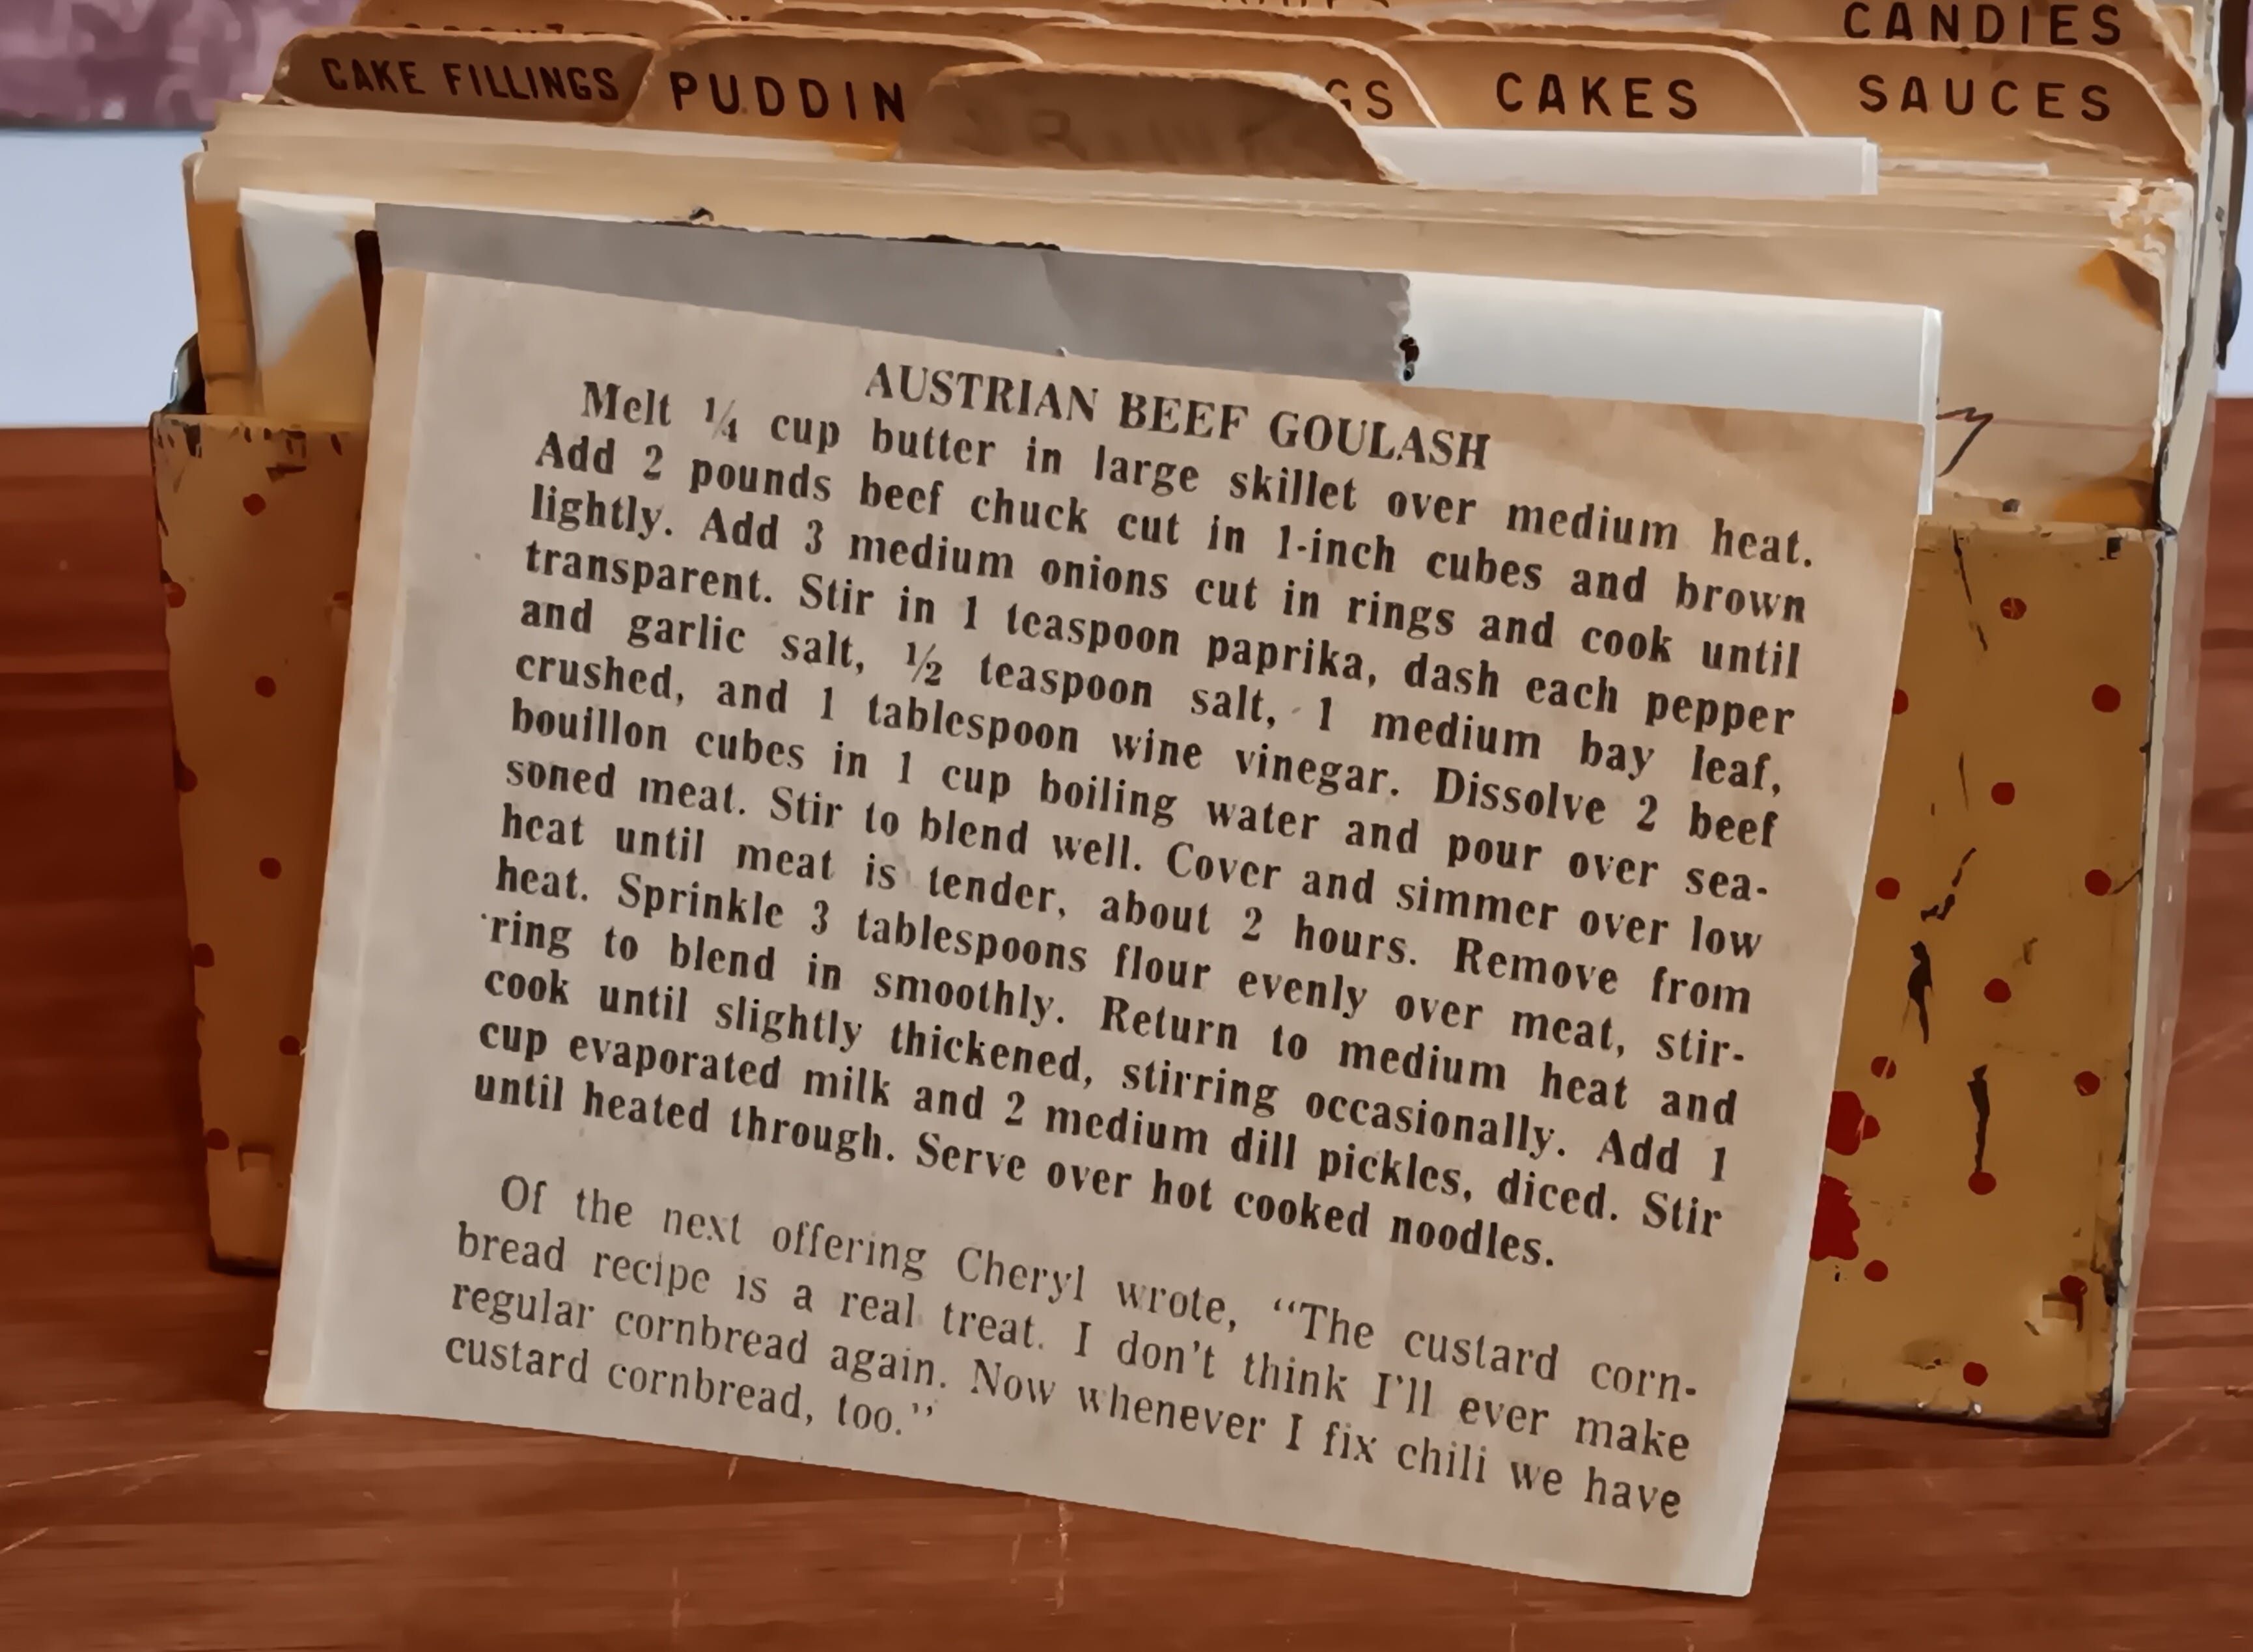 CANDIES
CAKE FILLINGS PUDDIN GS CAKES SAUCES
AUSTRIAN BEEF GOULASH
Melt ¼ cup butter in large skillet over medium heat.
Add 2 pounds beef chuck cut in 1-inch cubes and brown
lightly. Add 3 medium onions cut in rings and cook until
transparent. Stir in 1 teaspoon paprika, dash each pepper
and garlic salt, ½ teaspoon salt, 1 medium bay leaf,
crushed, and 1 tablespoon wine vinegar. Dissolve 2 beef
bouillon cubes in 1 cup boiling water and pour over sea-
soned meat. Stir to blend well. Cover and simmer over low
heat until meat is tender, about 2 hours. Remove from
heat. Sprinkle 3 tablespoons flour evenly over meat, stir-
ring to blend in smoothly. Return to medium heat and
cook until slightly thickened, stirring occasionally. Add 1
cup evaporated milk and 2 medium dill pickles, diced. Stir
until heated through. Serve over hot cooked noodles.
Of the next offering Cheryl wrote, “The custard corn-
bread recipe is a real treat. I don't think I'll ever make
regular cornbread again. Now whenever I fix chili we have
custard cornbread, too.”